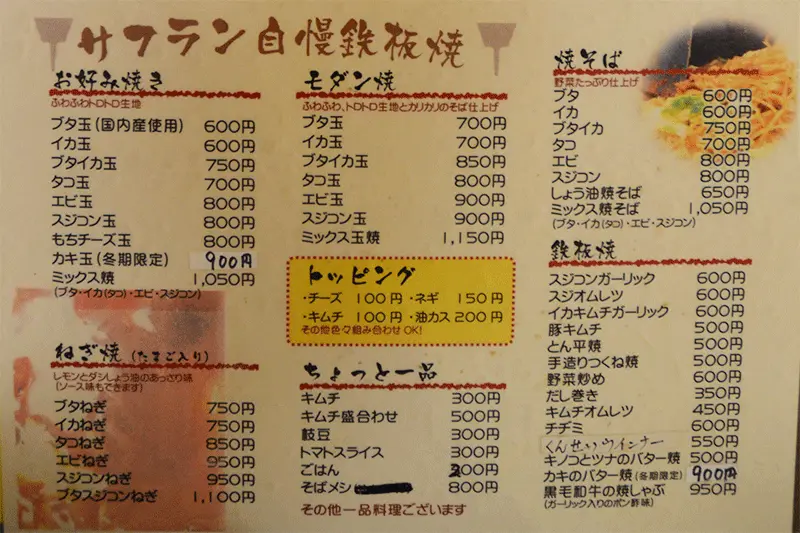 サフラン自慢鉄板焼
お好み焼き
ふわふわトロトロ生地
ブタ玉(国内産使用) 600円
イカ玉 600円
ブタイカ玉 750円
タコ玉 700円
エビ玉 800円
スジコン玉 800円
もちチーズ玉 800円
カキ玉(冬期限定) 900円
ミックス焼 1,050円
(ブタ・イカ(タコ)・エビ・スジコン)
ねぎ焼(たまご入り)
レモンとダシしょう油のあっさり味
(ソース味もできます)
ブタねぎ 750円
イカねぎ 750円
タコねぎ 850円
エビねぎ 950円
スジコンねぎ 950円
ブタスジコンねぎ 1,100円
モダン焼
ふわふわ、トロトロ生地とカリカリのそば仕上げ
ブタ玉 700円
イカ玉 700円
ブタイカ玉 850円
タコ玉 800円
エビ玉 900円
スジコン玉 900円
ミックス玉焼 1,150円
トッピング
・チーズ 100円 ・ネギ 150円
・キムチ 100円 ・油カス 200円
その他色々組み合わせOK!
ちょっと一品
キムチ 300円
キムチ盛合わせ 500円
枝豆 300円
トマトスライス 300円
ごはん 200円
そばメシ 800円
その他一品料理ございます
焼そば
野菜たっぷり仕上げ
ブタ 600円
イカ 600円
ブタイカ 750円
タコ 700円
エビ 800円
スジコン 800円
しょう油焼そば 650円
ミックス焼そば 1,050円
(ブタ・イカ(タコ)・エビ・スジコン)
鉄板焼
スジコンガーリック 600円
スジオムレツ 600円
イカキムチガーリック 600円
豚キムチ 500円
とん平焼 500円
手造りつくね焼 500円
野菜炒め 600円
だし巻き 350円
キムチオムレツ 450円
チヂミ 600円
くんせいウインナー 550円
キノコとツナのバター焼 500円
カキのバター焼(冬期限定) 900円
黒毛和牛の焼しゃぶ 950円
(ガーリック入りのポン酢味)